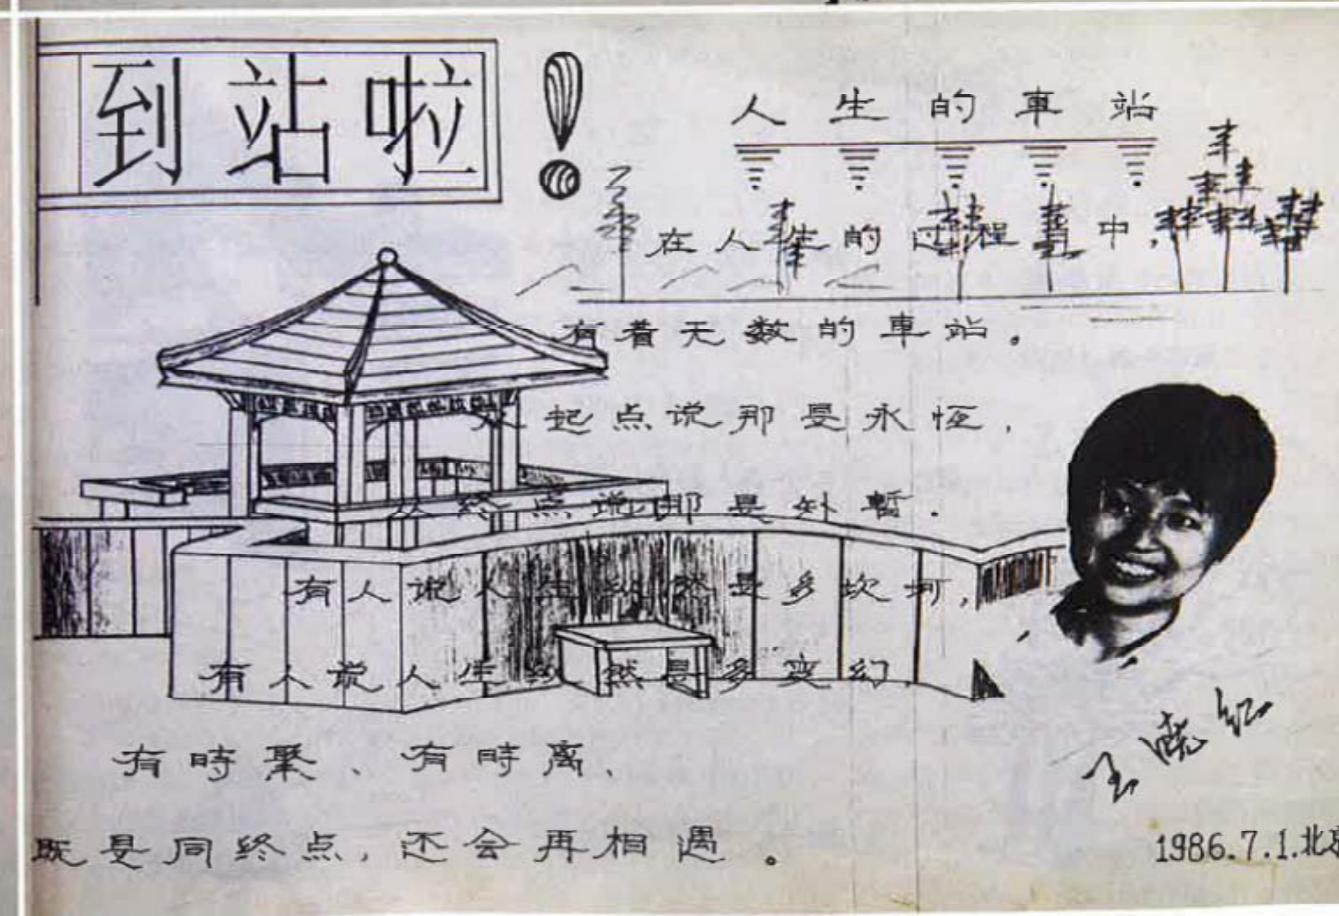 到站啦！
人生的車站
在人生的过程中，
有着无数的車站。
从起点说那是永恒，
从终点说那是暫．
有人说人生纵然是多坎坷，
有人说人生纵然是多变幻，
有時聚、有時离、
既是同终点，还会再相遇。
王晓红
1986.7.1.北京